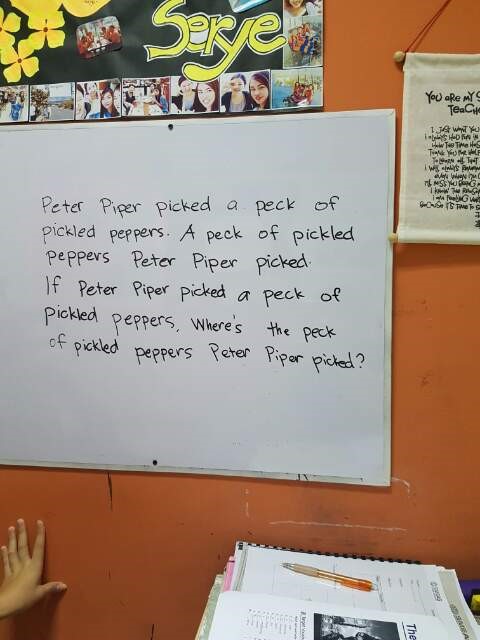 Serye
Peter Piper picked a peck of
pickled peppers. A peck of pickled
peppers Peter Piper picked.
If Peter Piper picked a peck of
pickled peppers, Where's the peck
of pickled peppers Peter Piper picked?
YOU ARE MY
TEACH
I JUST WANT YOU
The